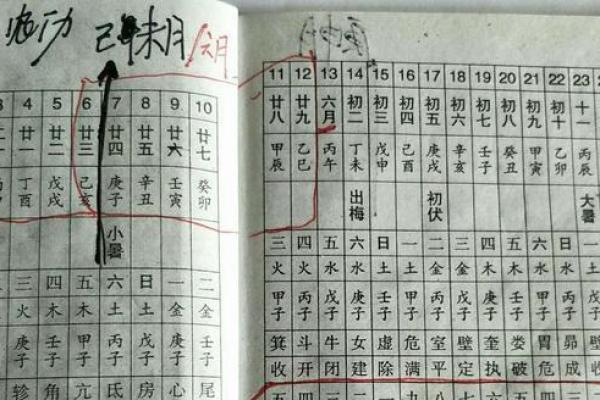 己未月/六月
4 5 6 7 8 9 10
廿一 廿二 廿三 廿四 廿五 廿六 廿七
丁酉 戊戌 己亥 庚子 辛丑 壬寅 癸卯
小暑
三 四 五 六 日 一 二
火 木 木 土 土 金 金
庚子 壬子 甲子 丙子 戊子 庚子 壬子
轸 角 亢 氐 房 心 尾
11 12 13 14 15 16 17 18 19 20 21 22 23
廿八 廿九 六月 初二 初三 初四 初五 初六 初七 初八 初九 初十 十一
甲辰 乙巳 丙午 丁未 戊申 己酉 庚戌 辛亥 壬子 癸丑 甲寅 乙卯 丙辰
出梅 初伏 大暑
三 四 五 六 日 一 二 三 四 五 六 日 一
火 火 水 水 土 土 金 金 木 木 水 水 土
甲子 丙子 戊子 庚子 壬子 甲子 丙子 戊子 庚子 壬子 甲子 丙子 戊子
箕 斗 牛 女 虚 危 室 壁 奎 娄 胃 昴
收 开 闭 建 除 满 平 定 执 破 危 成 收